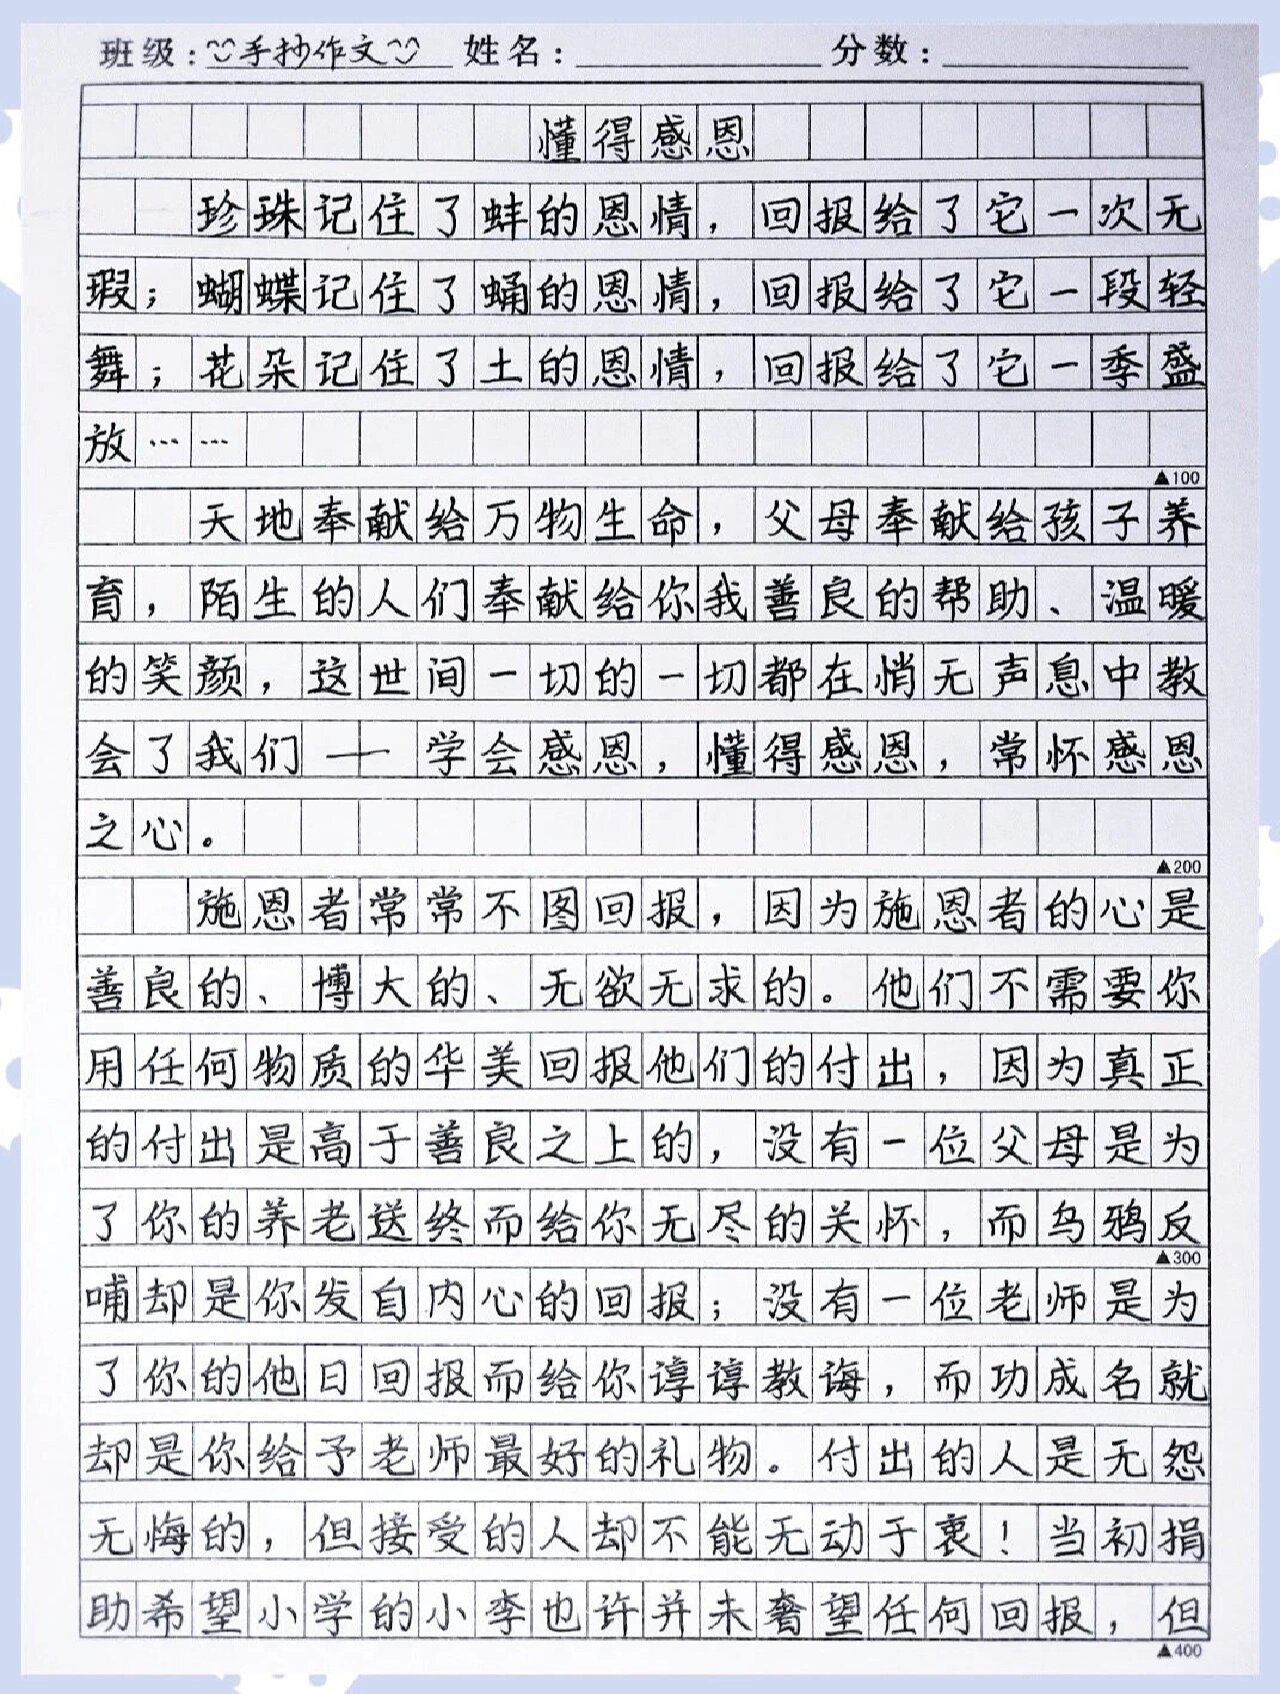 班级：手抄作文 姓名： 分数：
懂得感恩
珍珠记住了蚌的恩情，回报给了它一次无
瑕；蝴蝶记住了蛹的恩情，回报给了它一段轻
舞；花朵记住了土的恩情，回报给了它一季盛
放……
▲100
天地奉献给万物生命，父母奉献给孩子养
育，陌生的人们奉献给你我善良的帮助、温暖
的笑颜，这世间一切的一切都在悄无声息中教
会了我们——学会感恩，懂得感恩，常怀感恩
之心。
▲200
施恩者常常不图回报，因为施恩者的心是
善良的、博大的、无欲无求的。他们不需要你
用任何物质的华美回报他们的付出，因为真正
的付出是高于善良之上的，没有一位父母是为
了你的养老送终而给你无尽的关怀，而乌鸦反
▲300
哺却是你发自内心的回报；没有一位老师是为
了你的他日回报而给你谆谆教诲，而功成名就
却是你给予老师最好的礼物。付出的人是无怨
无悔的，但接受的人却不能无动于衷！当初捐
助希望小学的小李也许并未奢望任何回报，但
▲400